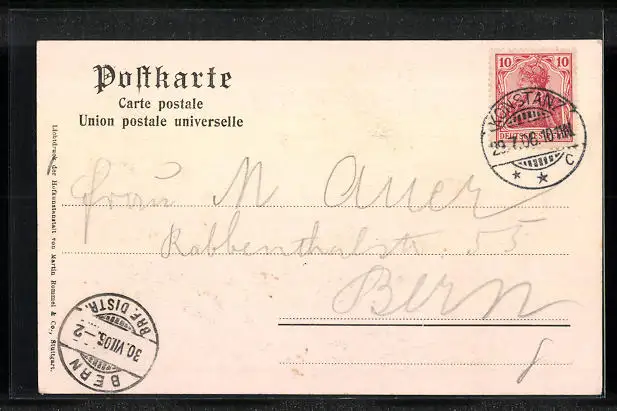 Postkarte
Carte postale
Union postale universelle
10 10
DEUTSCHES
KONSTANZ
29.7.06.10-11N.
* * c
Frau M Auer
Rabbenthalstr. 55
Bern
BRF. DISTR.
30.VII.06.-2
BERN
Lichtdruck der Hofkunstanstalt von Martin Rommel & Co., Stuttgart.